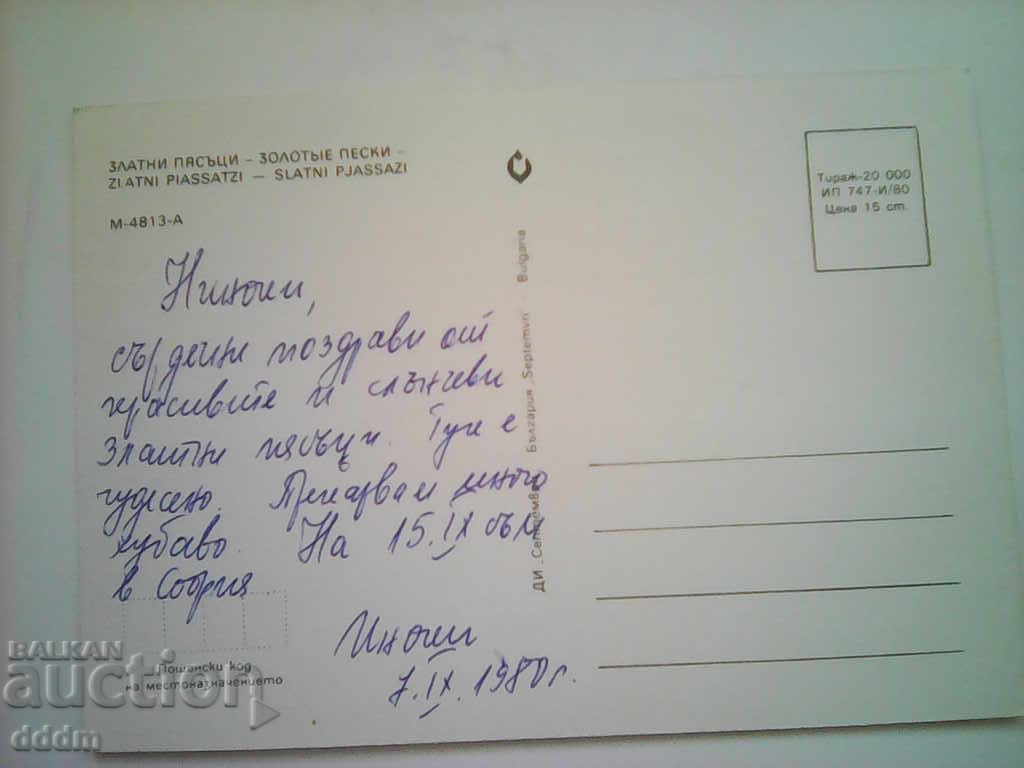 ЗЛАТНИ ПЯСЪЦИ – ЗОЛОТЫЕ ПЕСКИ –
ZLATNI PIASSATZI — SLATNI PJASSAZI
М-4813-А
Тираж-20 000
ИП 747-И/80
Цена 15 ст.
сърдечни поздрави от
красивите и слънчеви
Златни пясъци. Тук е
чудесно. Прекарвам много
хубаво. На 15.IX съм
в София.
7.IX.1980 г.
ДИ „Септември“ България „Septemvri“ Bulgaria
Пощенски код
на местоназначението
BALKAN
auction
dddm